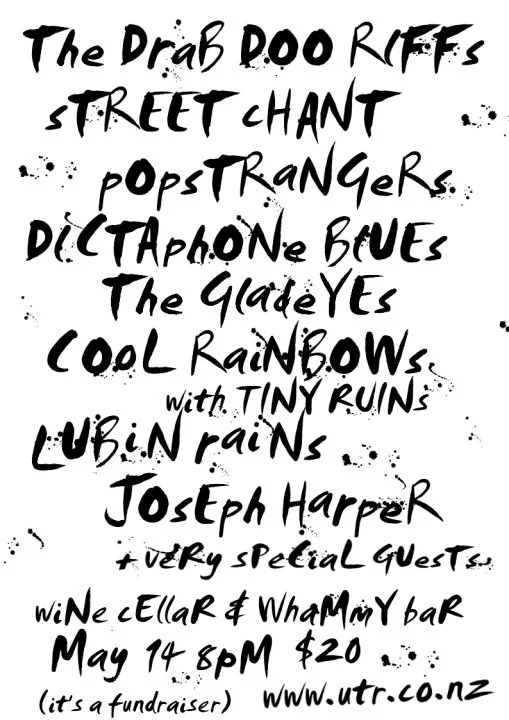 The DraB DOO RIFFs
sTREET cHANT
pOpsTRaNGeRs
DiCTAphONe BlUEs
The GladeYEs
COOL RaiNBOWs
with TINY RUINs
LUBiN raiNs
JOsEph HarpeR
+ VERy sPeCiaL GUesTs
wiNe cEllaR & WhaMMY baR
May 14 8pM $20
(it's a fundraiser) www.utr.co.nz